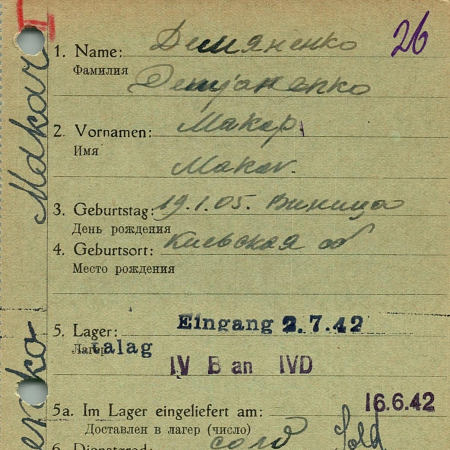 I
26
1. Name: Демяненко
Фамилия
2. Vornamen: Макар
Имя
Makar
3. Geburtstag: 19.1.05. Виница
День рождения
4. Geburtsort: Киевская об
Место рождения
Eingang 2.7.42
5. Lager:
Лагерь talag
IV B an IVD
16.6.42
5a. Im Lager eingeliefert am:
Доставлен в лагерь (число)
6. Dienstgrad: солд Sold
Makar
enko